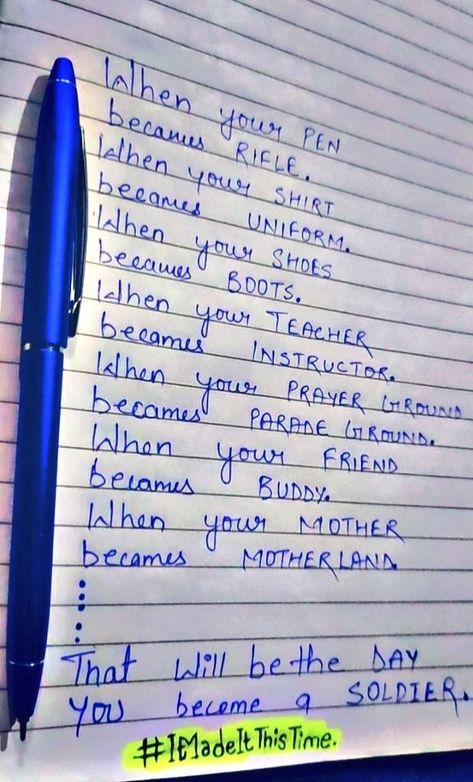 When your PEN
becames RIFLE.
When your SHIRT
becames UNIFORM.
When your SHOES
becames BOOTS.
When your TEACHER
becames INSTRUCTOR.
When your PRAYER GROUND
becames PARADE GROUND.
When your FRIEND
becames BUDDY.
When your MOTHER
becames MOTHERLAND.
That will be the DAY
You become a SOLDIER.
#IfMadeItThisTime.